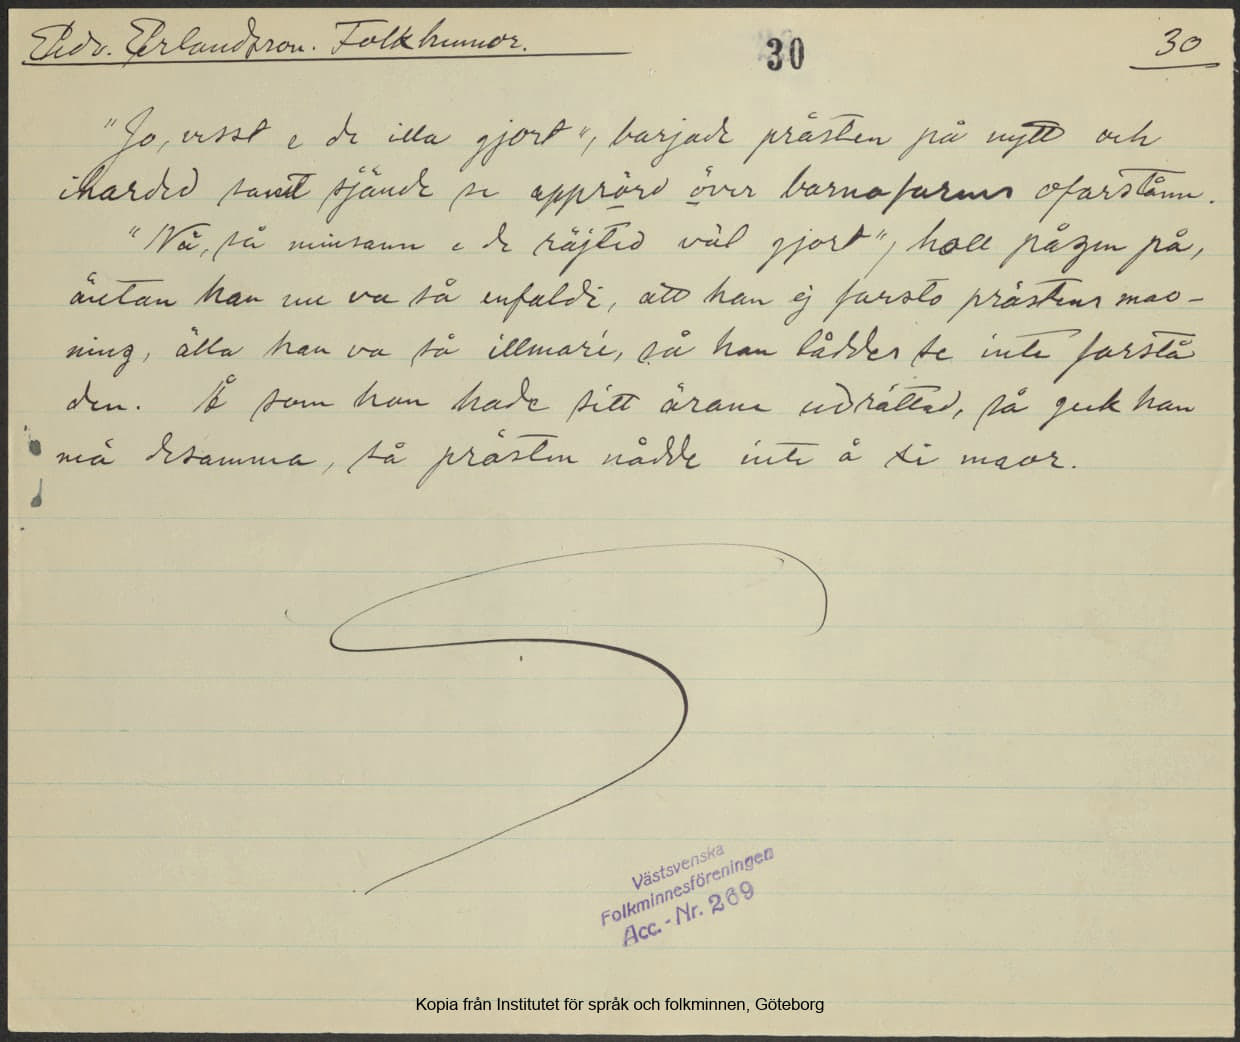 Edv. Erlandsson. Folkhumor.
30
30
"Jo, visst e de illa gjort", barjade prästen på nytt och
ihärded samt sjände se opprörd över barnafarens ofarstånn.
"Nä, så minsann e de räjted väl gjort", holl pågen på,
äntan han nu va så enfaldi, att han ej farsto prästens mao-
ning, älla han va så illmari, så han låddes se inte farstå
den. Å som han hade sitt ärane udrättad, så geck han
mä desamma, så prästen nådde inte å si maor.
Västsvenska
Folkminnesföreningen
Acc.-Nr. 269
Kopia från Institutet för språk och folkminnen, Göteborg